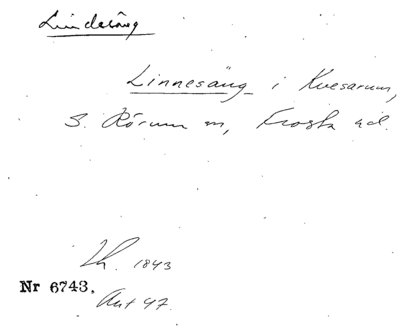 Lindesäng
Linnesäng i Kvesarum,
S. Rörum sn, Frosta hd.
Lh. 1843
Nr 6743.
Avt 47.